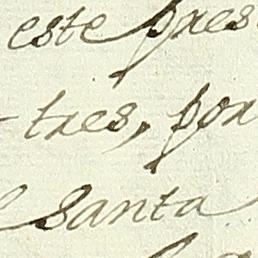 este pres
tres, por
santa